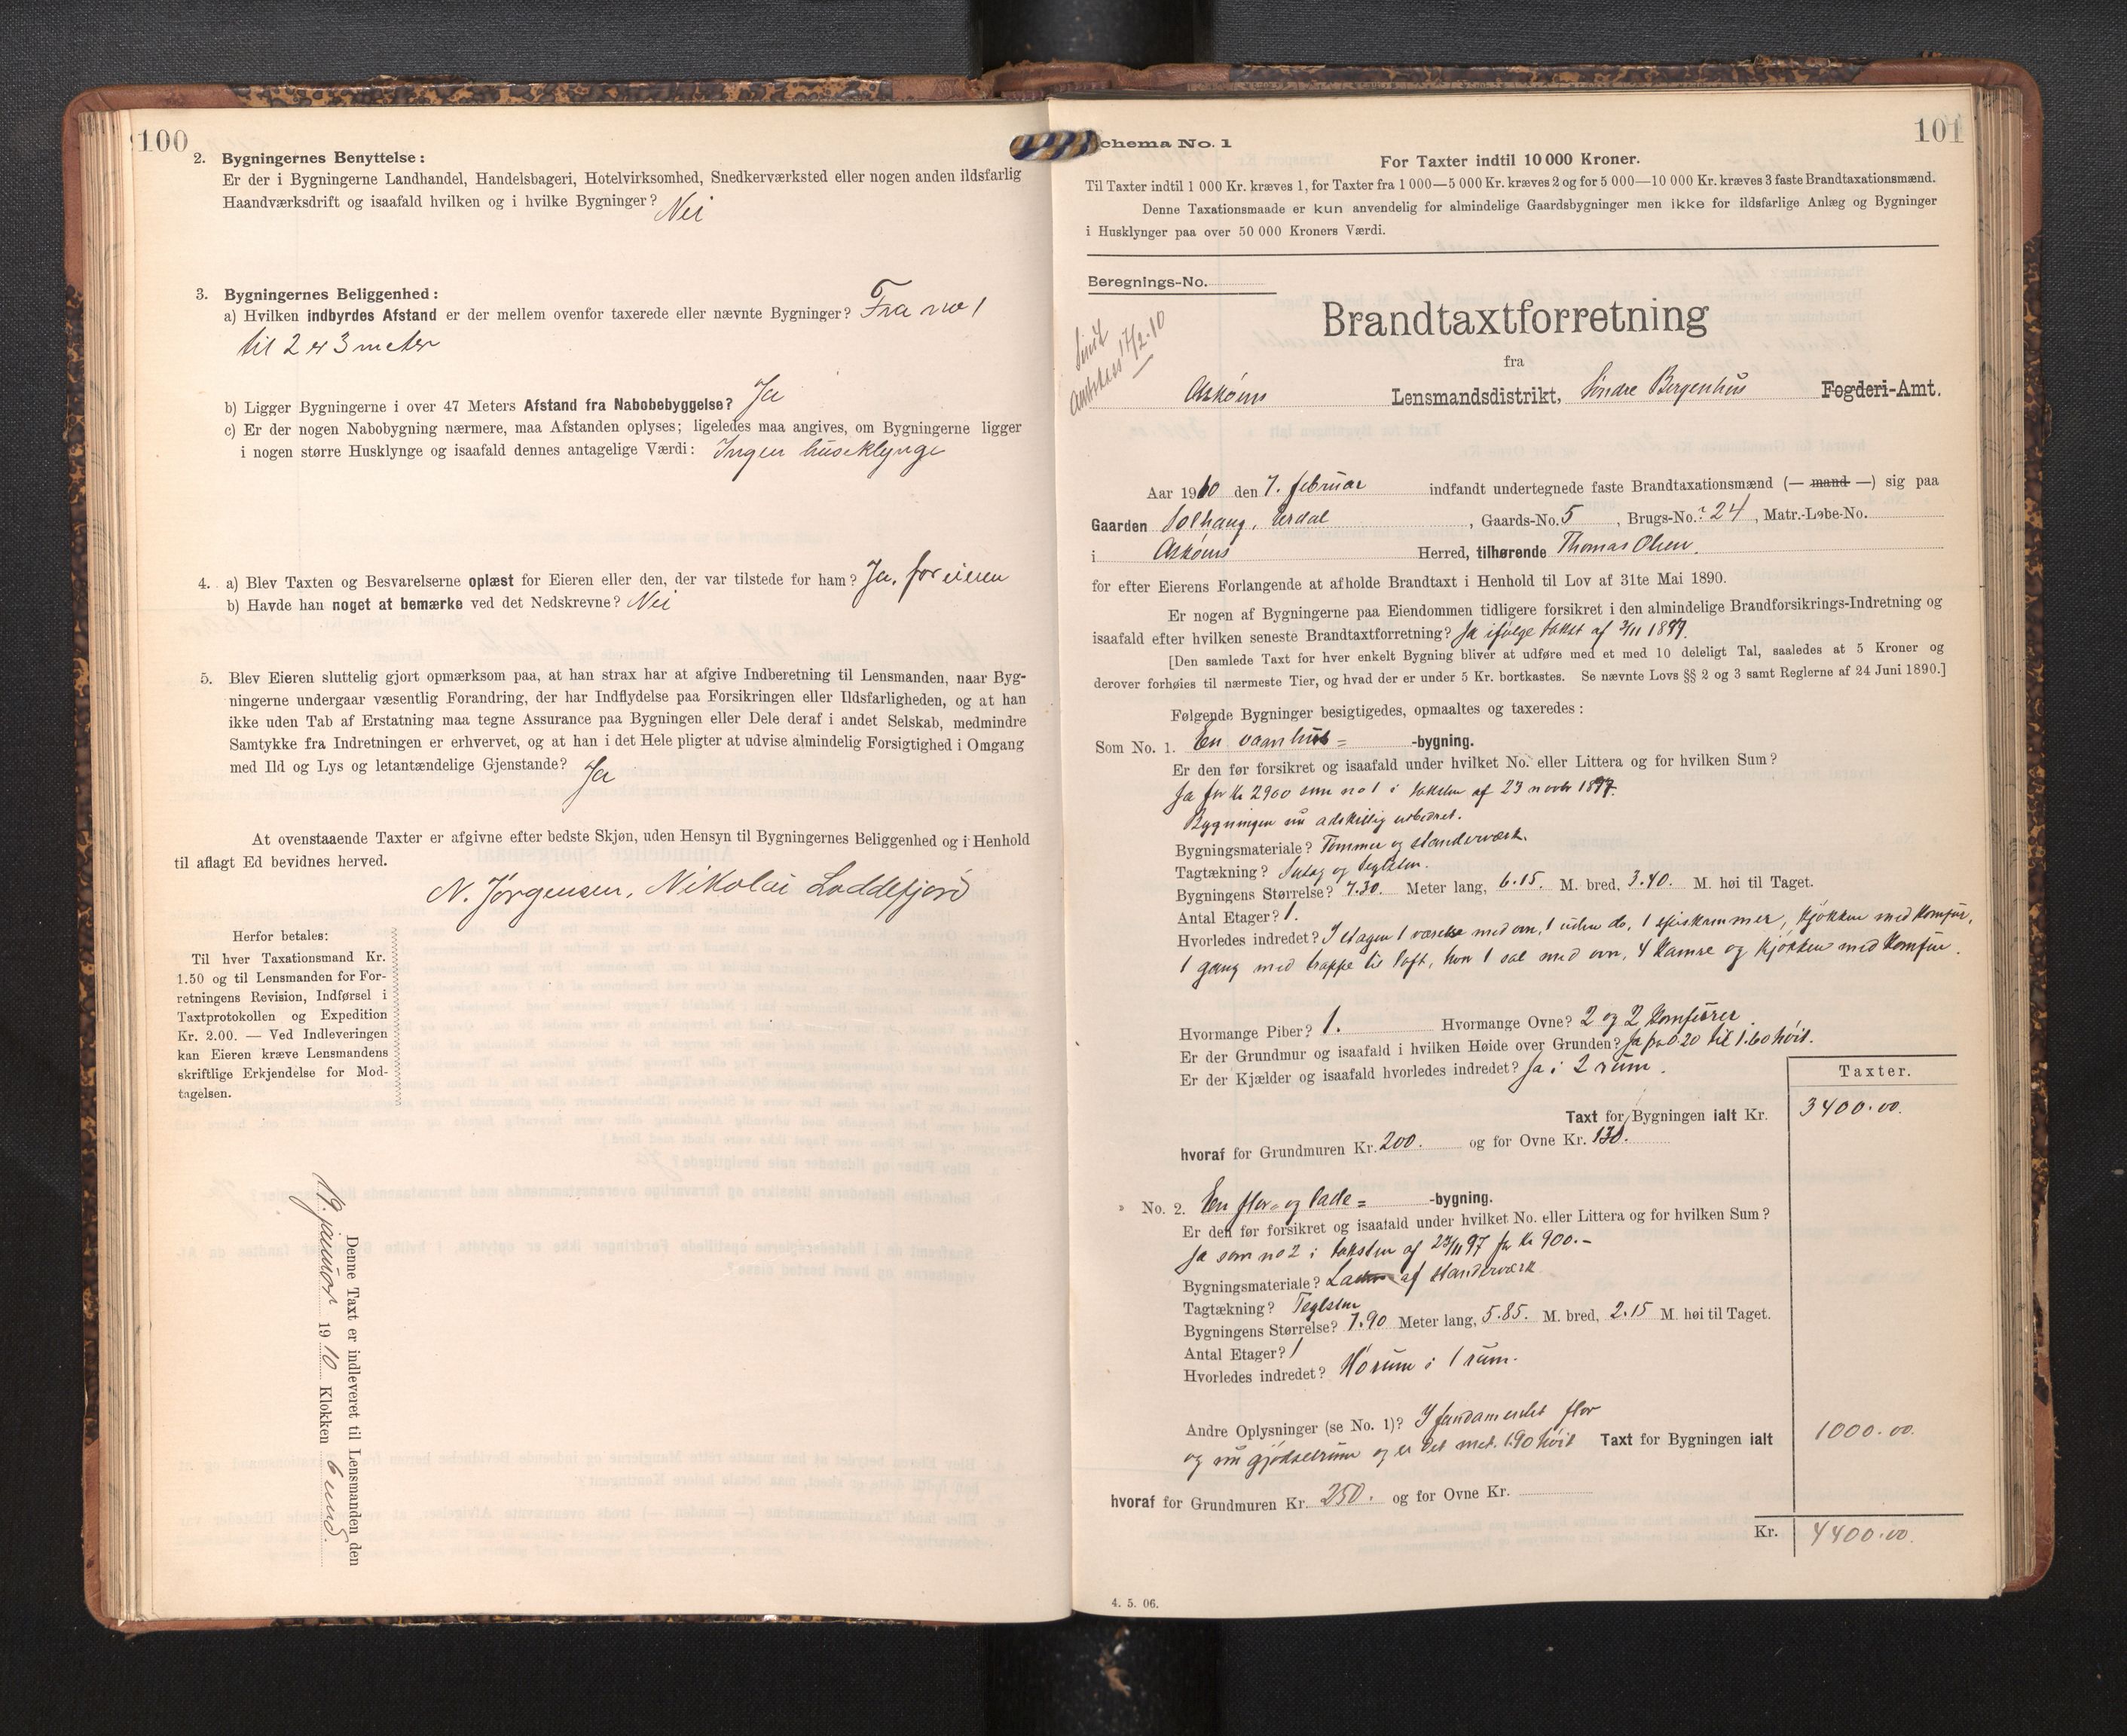 100
2. Bygningernes Benyttelse:
Er der i Bygningerne Landhandel, Handelsbageri, Hotelvirksomhed, Snedkerværksted eller nogen anden ildsfarlig
Haandværksdrift og isaafald hvilken og i hvilke Bygninger? Nei
3. Bygningernes Beliggenhed:
a) Hvilken indbyrdes Afstand er der mellem ovenfor taxerede eller nævnte Bygninger? Fra no 1
til 2 er 3 meter
b) Ligger Bygningerne i over 47 Meters Afstand fra Nabobebyggelse? Ja
c) Er der nogen Nabobygning nærmere, maa Afstanden oplyses; ligeledes maa angives, om Bygningerne ligger
i nogen større Husklynge og isaafald dennes antagelige Værdi: Ingen huseklynge
4. a) Blev Taxten og Besvarelserne oplæst for Eieren eller den, der var tilstede for ham? Ja, for eieren
b) Havde han noget at bemærke ved det Nedskrevne? Nei
5. Blev Eieren sluttelig gjort opmærksom paa, at han strax har at afgive Indberetning til Lensmanden, naar Byg-
ningerne undergaar væsentlig Forandring, der har Indflydelse paa Forsikringen eller Ildsfarligheden, og at han
ikke uden Tab af Erstatning maa tegne Assurance paa Bygningen eller Dele deraf i andet Selskab, medmindre
Samtykke fra Indretningen er erhvervet, og at han i det Hele pligter at udvise almindelig Forsigtighed i Omgang
med Ild og Lys og letantændelige Gjenstande? Ja
At ovenstaaende Taxter er afgivne efter bedste Skjøn, uden Hensyn til Bygningernes Beliggenhed og i Henhold
til aflagt Ed bevidnes herved.
N. Jørgensen, Nikolai Loddefjord
Herfor betales:
Til hver Taxationsmand Kr.
1.50 og til Lensmanden for For-
retningens Revision, Indførsel i
Taxtprotokollen og Expedition
Kr. 2.00. — Ved Indleveringen
kan Eieren kræve Lensmandens
skriftlige Erkjendelse for Mod-
tagelsen.
Denne Taxt er indleveret til Lensmanden den
19. januar 1910 Klokken 6 em
101
Schema No. 1
For Taxter indtil 10 000 Kroner.
Til Taxter indtil 1 000 Kr. kræves 1, for Taxter fra 1 000—5 000 Kr. kræves 2 og for 5 000—10 000 Kr. kræves 3 faste Brandtaxationsmænd.
Denne Taxationsmaade er kun anvendelig for almindelige Gaardsbygninger men ikke for ildsfarlige Anlæg og Bygninger
i Husklynger paa over 50 000 Kroners Værdi.
Beregnings-No.
17/2-10
Brandtaxtforretning
fra
Askøens Lensmandsdistrikt, Søndre Bergenhus Fogderi-Amt.
Aar 1910 den 7. februar indfandt undertegnede faste Brandtaxationsmænd (— mand —) sig paa
Gaarden Solhaug, Erdal, Gaards-No. 5, Brugs-No. 24, Matr.-Løbe-No.
i Askøens Herred, tilhørende Thomas Olsen.
for efter Eierens Forlangende at afholde Brandtaxt i Henhold til Lov af 31te Mai 1890.
Er nogen af Bygningerne paa Eiendommen tidligere forsikret i den almindelige Brandforsikrings-Indretning og
isaafald efter hvilken seneste Brandtaxtforretning? Ja ifølge takst af 1897.
[Den samlede Taxt for hver enkelt Bygning bliver at udføre med et med 10 deleligt Tal, saaledes at 5 Kroner og
derover forhøies til nærmeste Tier, og hvad der er under 5 Kr. bortkastes. Se nævnte Lovs §§ 2 og 3 samt Reglerne af 24 Juni 1890.]
Følgende Bygninger besigtigedes, opmaaltes og taxeredes:
Som No. 1. En vaanhus= -bygning.
Er den før forsikret og isaafald under hvilket No. eller Littera og for hvilken Sum?
Ja for kr 2900 som no 1 i taksten af 23 novbr 1897.
Bygningen nu adskillig udbedret.
Bygningsmateriale? Tømmer og standerværk.
Tagtækning? Sutag og teglsten.
Bygningens Størrelse? 7.30. Meter lang, 6.15. M. bred, 3.40. M. høi til Taget.
Antal Etager? 1.
Hvorledes indredet? I etagen 1 værelse med ovn, 1 uden do, 1 spiskammer, kjøkken med komfur,
1 gang med trappe til loft, hvor 1 sal med ovn, 4 kamre og kjøkken med komfur.
Hvormange Piber? 1. Hvormange Ovne? 2 og 2 komfurer.
Er der Grundmur og isaafald i hvilken Høide over Grunden? Ja fra 0.20 til 1.60 høit.
Er der Kjælder og isaafald hvorledes indredet? Ja i 2 rum.
Taxter.
Taxt for Bygningen ialt Kr. 3400.00.
hvoraf for Grundmuren Kr. 200. og for Ovne Kr. 130.
No. 2. En flor- og lade= -bygning.
Er den før forsikret og isaafald under hvilket No. eller Littera og for hvilken Sum?
Ja som no 2 i taksten af 23/11 97 for kr 900.-
Bygningsmateriale? Laden af standerværk
Tagtækning? Teglsten
Bygningens Størrelse? 7.90 Meter lang, 5.85. M. bred, 2.15 M. høi til Taget.
Antal Etager? 1
Hvorledes indredet? Hørum i 1 rum.
Andre Oplysninger (se No. 1)? I fundamentet flor
og nu gjødselrum og er det met. 1.90 høit Taxt for Bygningen ialt 1000.00.
hvoraf for Grundmuren Kr. 250. og for Ovne Kr.
Kr. 4400.00.
4. 5. 06.